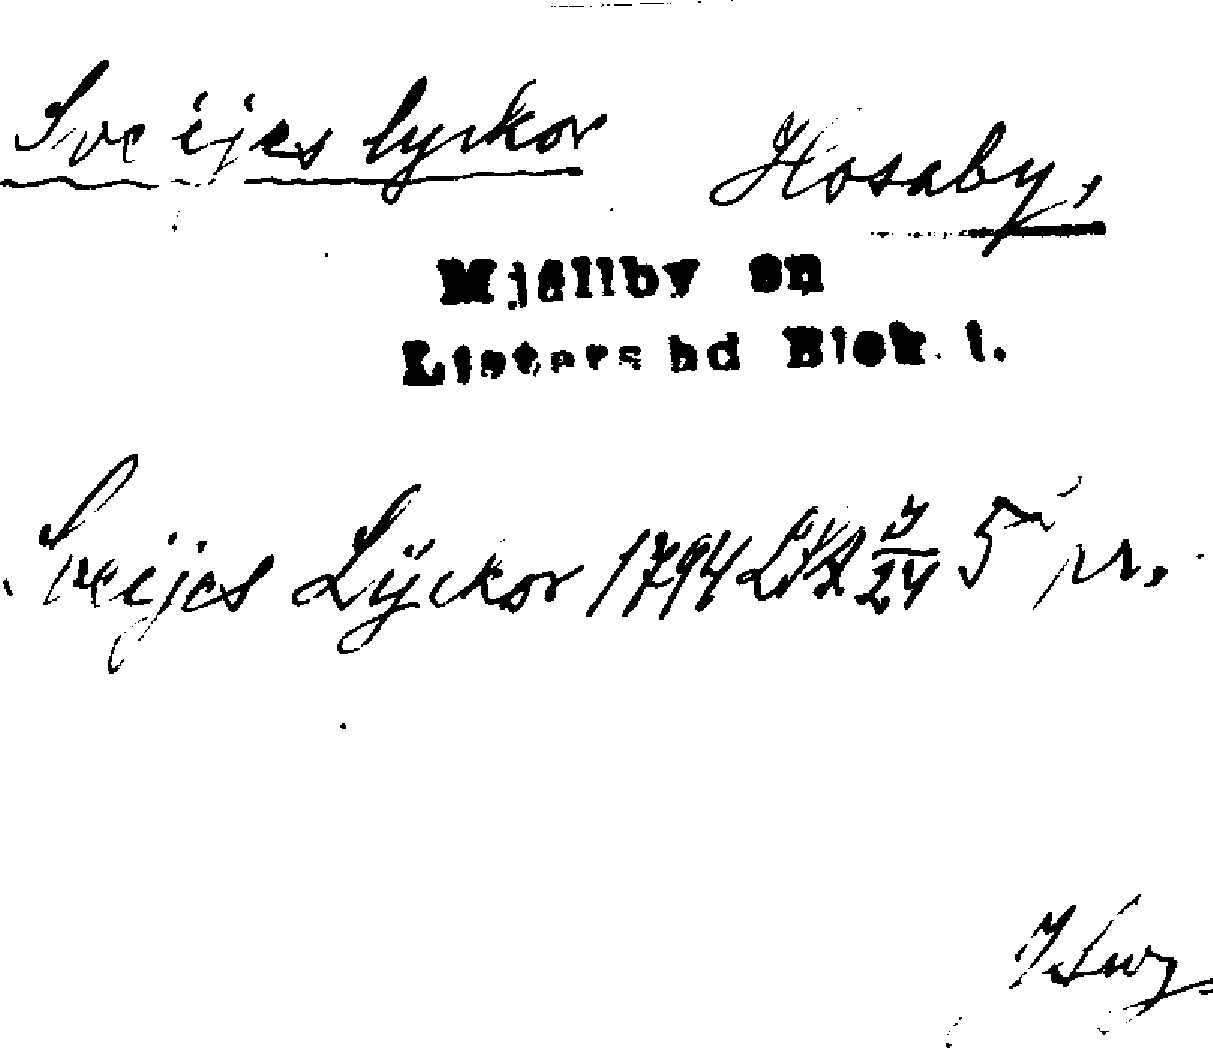 Sveijes lyckor Hosaby,
Mjällby sn
Listers hd Blek. l.
Sveijes Lÿckor 1794 LSA 4/24 5 pr.